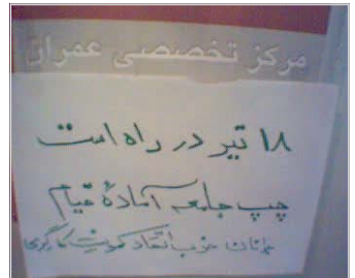 مرکز تخصصی عمران
۱۸ تیر در راه است
چپ جامعه آمادهٔ قیام
حزب اتحاد کمونیسم کارگری